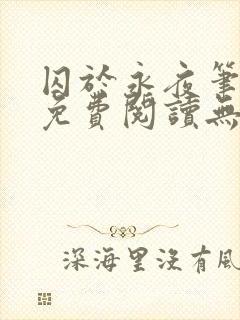 囚於永夜筆
免費閱讀無
深海里沒有風